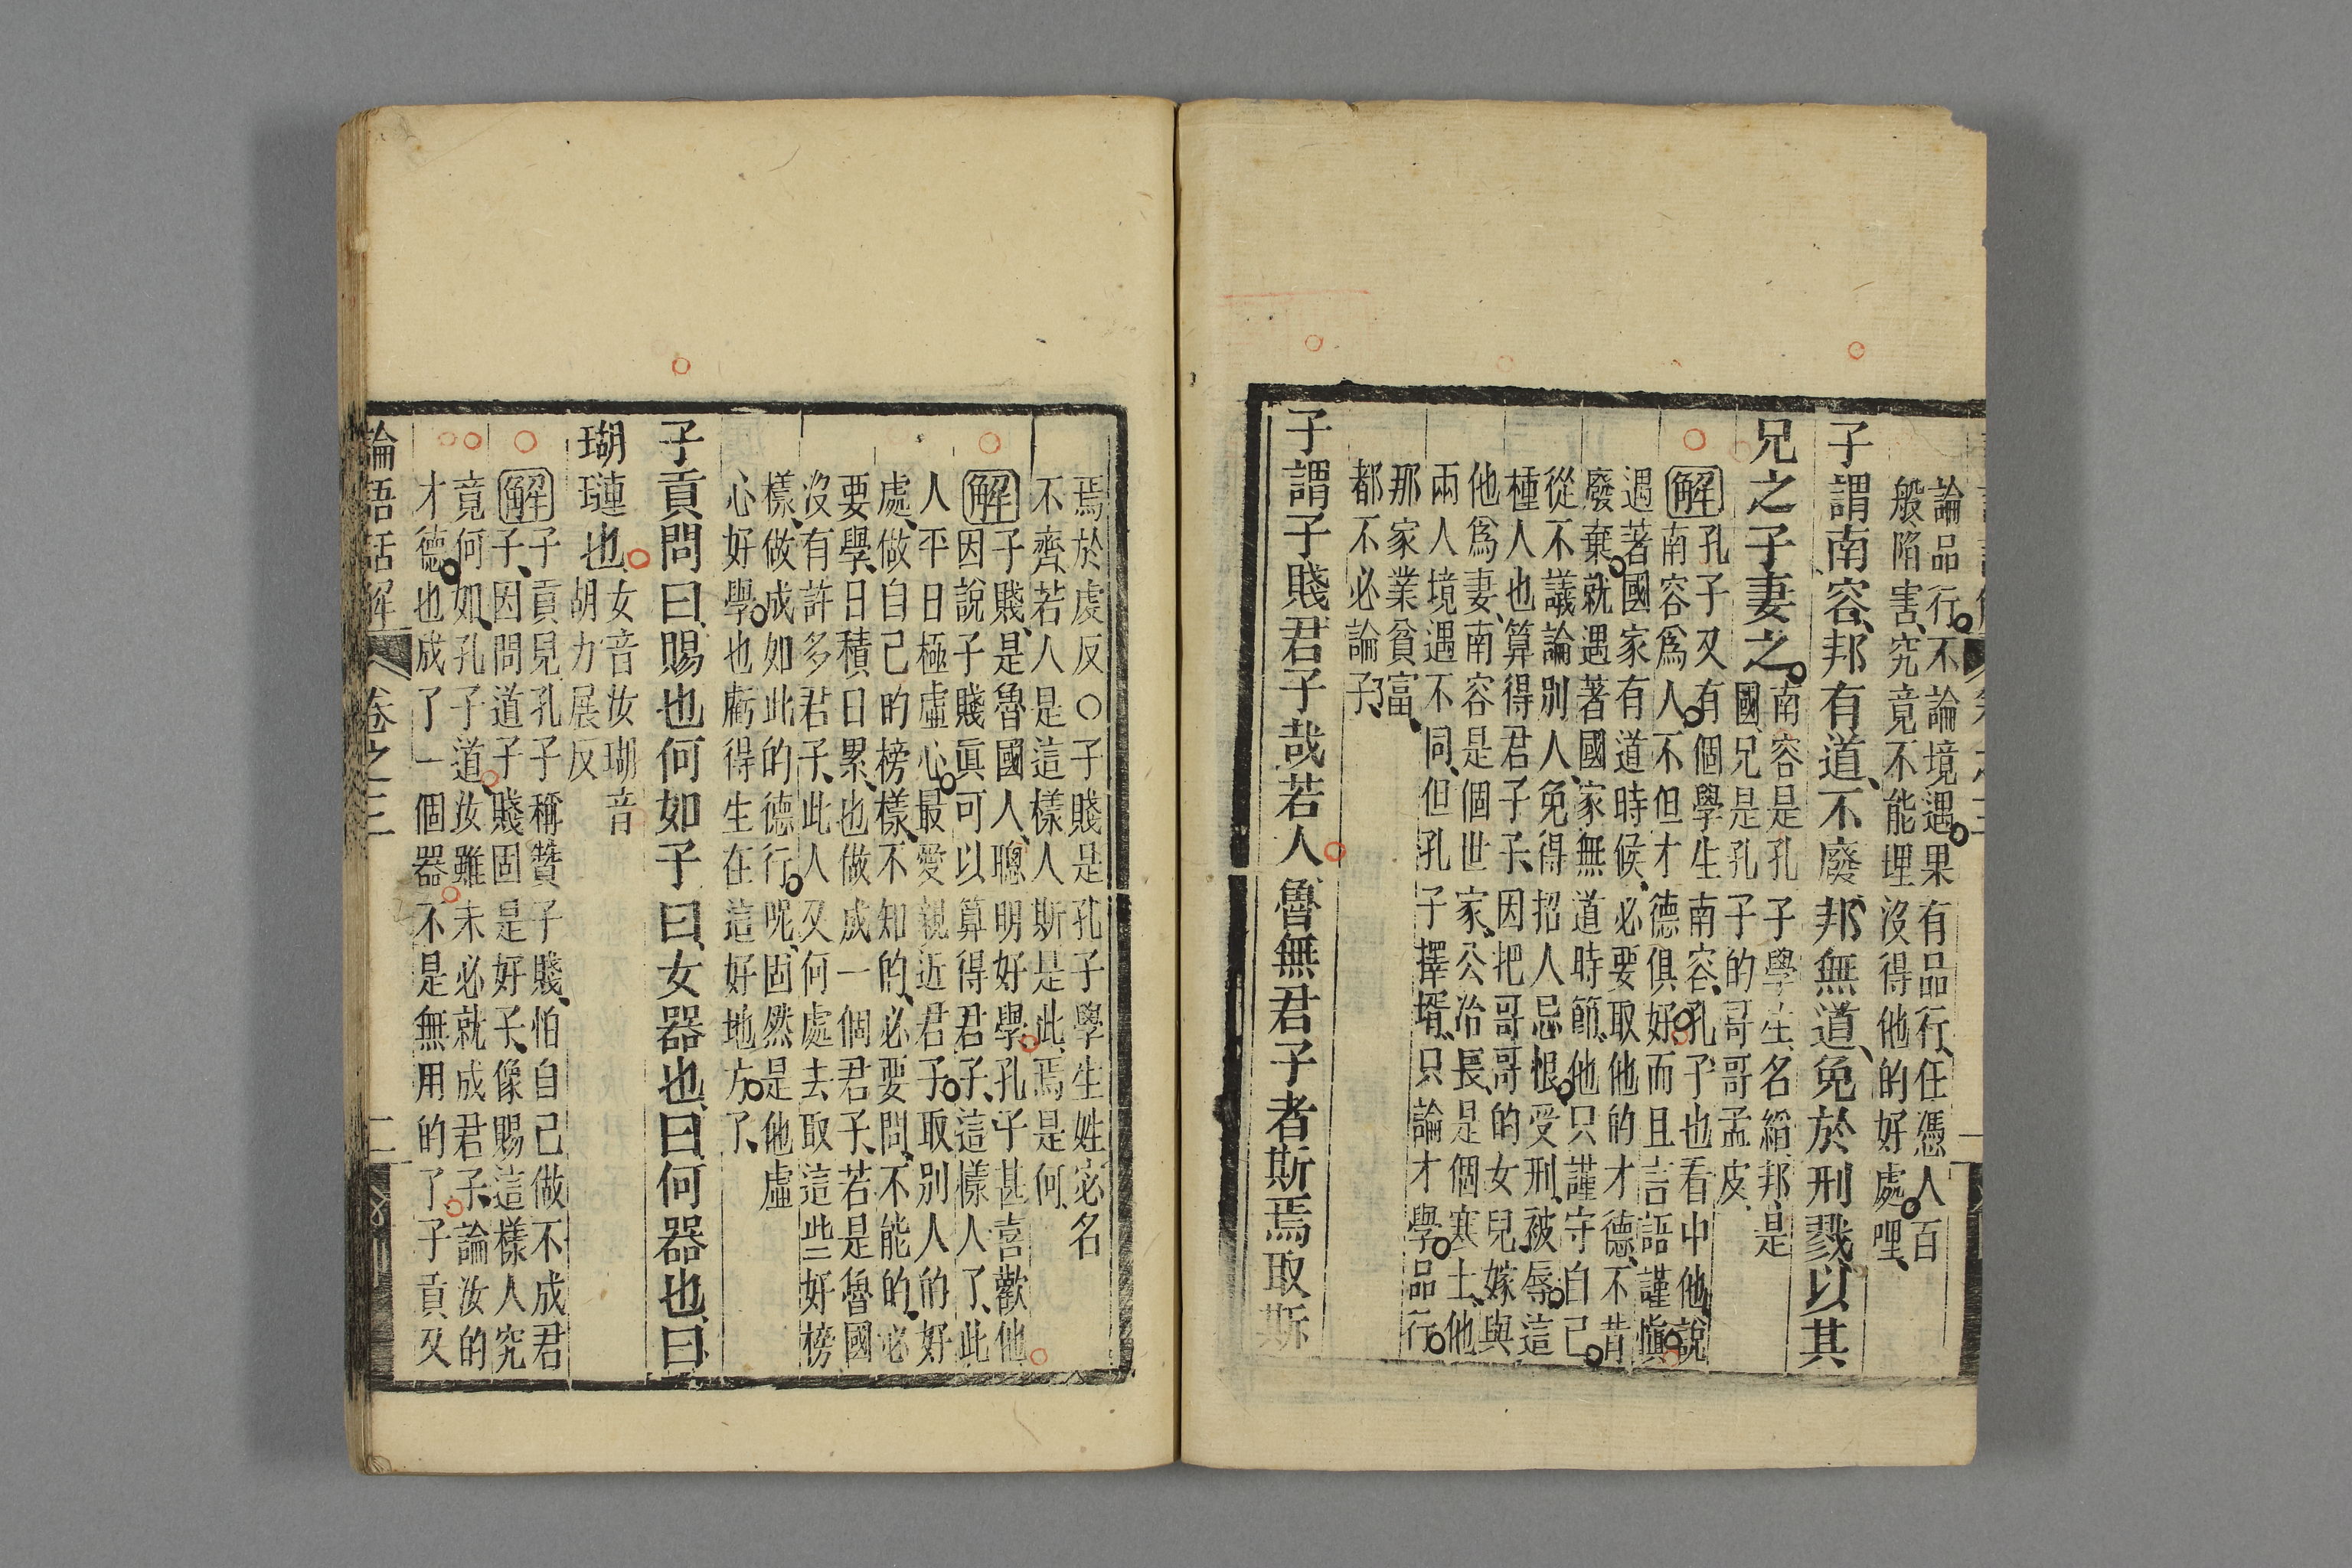 論品行不論境遇果有品行任憑人百
般陷害究竟不能埋沒得他的好處哩
子謂南容邦有道不廢邦無道免於刑戮以其
兄之子妻之
南容是孔子學生名縚邦是
國兄是孔子的哥哥孟皮
解
孔子又有個學生南容孔子也看中他說
南容爲人不但才德俱好而且言語謹愼
遇著國家有道時候必要取他的才德不肯
廢棄就遇著國家無道時節他只謹守自己
從不議論別人免得招人忌恨受刑被辱這
種人也算得君子子因把哥哥的女兒嫁與
他爲妻南容是個世家公冶長是個寒士他
兩人境遇不同但孔子擇壻只論才學品行
那家業貧富
都不必論了
子謂子賤君子哉若人魯無君子者斯焉取斯
焉於虔反○子賤是孔子學生姓宓名
不齊若人是這樣人斯是此焉是何
解
子賤是魯國人聰明好學孔子甚喜歡他
因說子賤眞可以算得君子這樣人了此
人平日極虛心最愛親近君子取別人的好
處做自己的榜樣不知的必要問不能的必
要學日積日累也做成一個君子若是魯國
沒有許多君子此人又何處去取這些好榜
樣做成如此的德行呢固然是他虛
心好學也虧得生在這好地方了
子貢問曰賜也何如子曰女器也曰何器也曰
瑚璉也
女音汝瑚音
胡力展反
解
子貢見孔子稱贊子賤怕自己做不成君
子因問道子賤固是好子像賜這樣人究
竟何如孔子道汝雖未必就成君子論汝的
才德也成了一個器不是無用的了子貢又
論語話解
卷之三
二